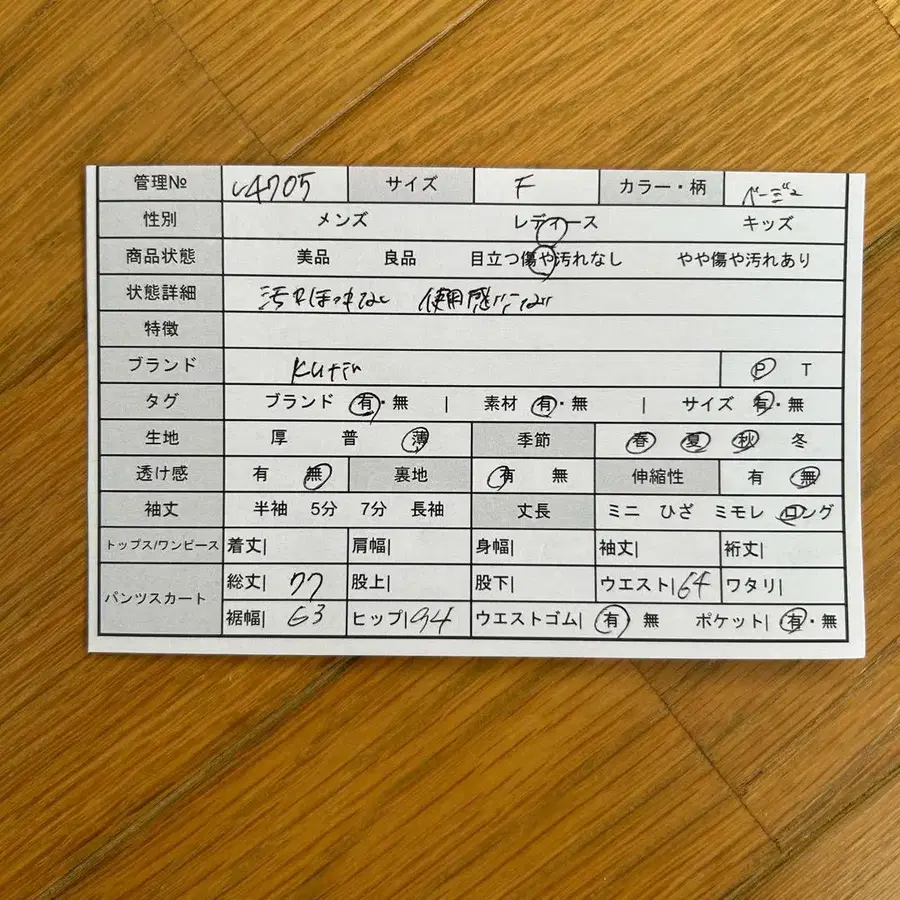 管理№ 4705 サイズ F カラー・柄 ベージュ
性別 メンズ レディース キッズ
商品状態 美品 良品 目立つ傷や汚れなし やや傷や汚れあり
状態詳細 汚れほつれなし 使用感
特徴
ブランド P T
タグ ブランド 有・無 | 素材 有・無 | サイズ 有・無
生地 厚 普 薄 季節 春 夏 秋 冬
透け感 有 無 裏地 有 無 伸縮性 有 無
袖丈 半袖 5分 7分 長袖 丈長 ミニ ひざ ミモレ ロング
トップス/ワンピース 着丈| 肩幅| 身幅| 袖丈| 裄丈|
パンツスカート 総丈| 77 股上| 股下| ウエスト| 64 ワタリ|
裾幅| 63 ヒップ| 94 ウエストゴム| 有・無 ポケット| 有・無